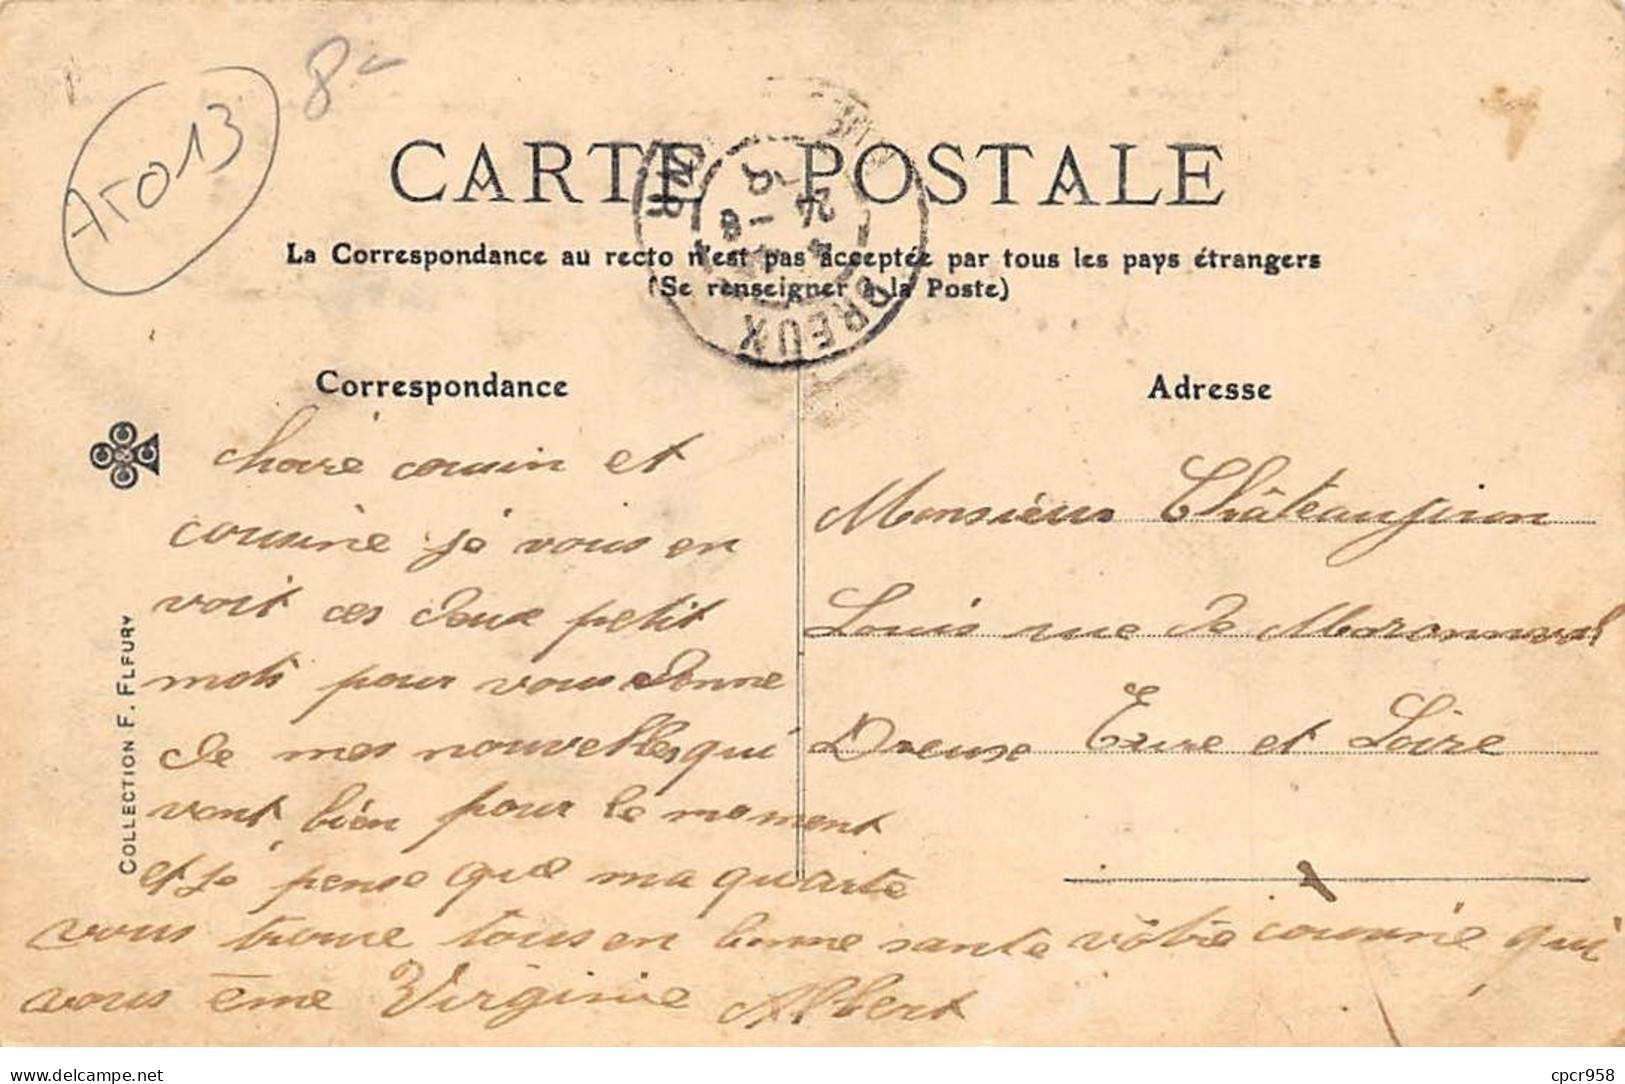 75013
8-
CARTE POSTALE
La Correspondance au recto n'est pas acceptée par tous les pays étrangers
(Se renseigner à la Poste)
DREUX
24 - 8
Correspondance
Adresse
C C C & C
COLLECTION F. FLEURY
chere cousin et
cousine je vous en
voit ces deux petit
mots pour vous donne
de mes nouvelles qui
vont bien pour le moment
et je pense que ma quarte
vous trouve tous en bonne sante vôtre cousine qui
vous éme Virginie Albert
Monsieur Châteaugiron
Louis rue de Moronval
Dreuse Eure et Loire
www.delcampe.net
cpcr958